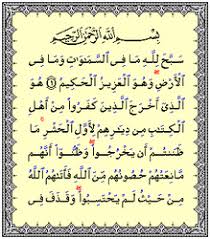 بِسْمِ اللَّهِ الرَّحْمَٰنِ الرَّحِيمِ
سَبَّحَ لِلَّهِ مَا فِي السَّمَٰوَٰتِ وَمَا فِي
الْأَرْضِ وَهُوَ الْعَزِيزُ الْحَكِيمُ ① هُوَ
الَّذِي أَخْرَجَ الَّذِينَ كَفَرُوا مِنْ أَهْلِ
الْكِتَٰبِ مِن دِيَٰرِهِمْ لِأَوَّلِ الْحَشْرِ مَا
ظَنَنتُمْ أَن يَخْرُجُوا وَظَنُّوا أَنَّهُم
مَّانِعَتُهُمْ حُصُونُهُم مِّنَ اللَّهِ فَأَتَىٰهُمُ اللَّهُ
مِنْ حَيْثُ لَمْ يَحْتَسِبُوا وَقَذَفَ فِي